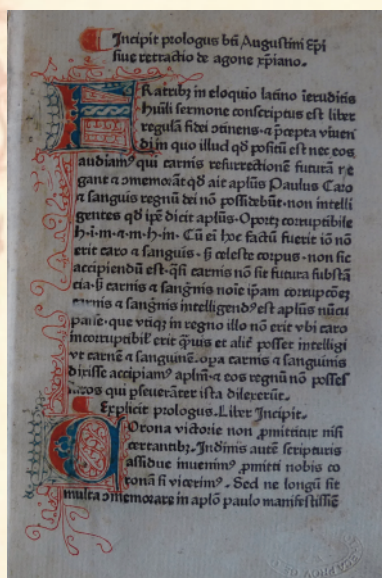 Incipit prologus bti Augustini Ep̄i
siue retractio de agone xp̄iano.
FRatribꝫ in eloquio latino ieruditis
hūili sermone conscriptus est liber
regulā fidei ↄtinens·⁊ p̄cepta viuen
di in quo illud qđ positū est nec eos
audiamꝰ qui carnis resurrectionē futurā ne
gant ⁊ ↄmemorāt qđ ait apl̄us Paulus Caro
⁊ sanguis regnū dei nō possidebūt·non intelli
gentes qđ ip̄e dicit apl̄us·Oportꝫ corruptibile
h·i·m·⁊·m·h·in·Cū eī hoc factū fuerit iō nō
erit caro ⁊ sanguis·ꞩ celeste corpus·non sic
accipiendū est·qͣsi carnis nō sit futura substā
cia·ꞩ carnis ⁊ sanguīs noīe ip̄am corrupcōeꝫ
carnis ⁊ sanguīs intelligendꝰ est apl̄us nūcu
passe·que vtiqꝫ in regno illo nō erit vbi caro
incorruptibil' erit qͣuis et alit̄ posset intelligi
vt carnē ⁊ sanguinē·op̄a carnis ⁊ sanguinis
dixisse accipiamꝰ apl̄m·⁊ eos regnū nō posses
suros qui pseuerāter ista dilexerūt.
Explicit prologus.Liber Incipit.
COrona victorie non ꝓmittitur nisi
certantibꝫ·Indiuinis autē scripturis
assidue inuenimꝰ ꝓmitti nobis co
ronā si vicerimꝰ·Sed ne longū sit
multa ↄmemorare in aplō paulo manifestissie